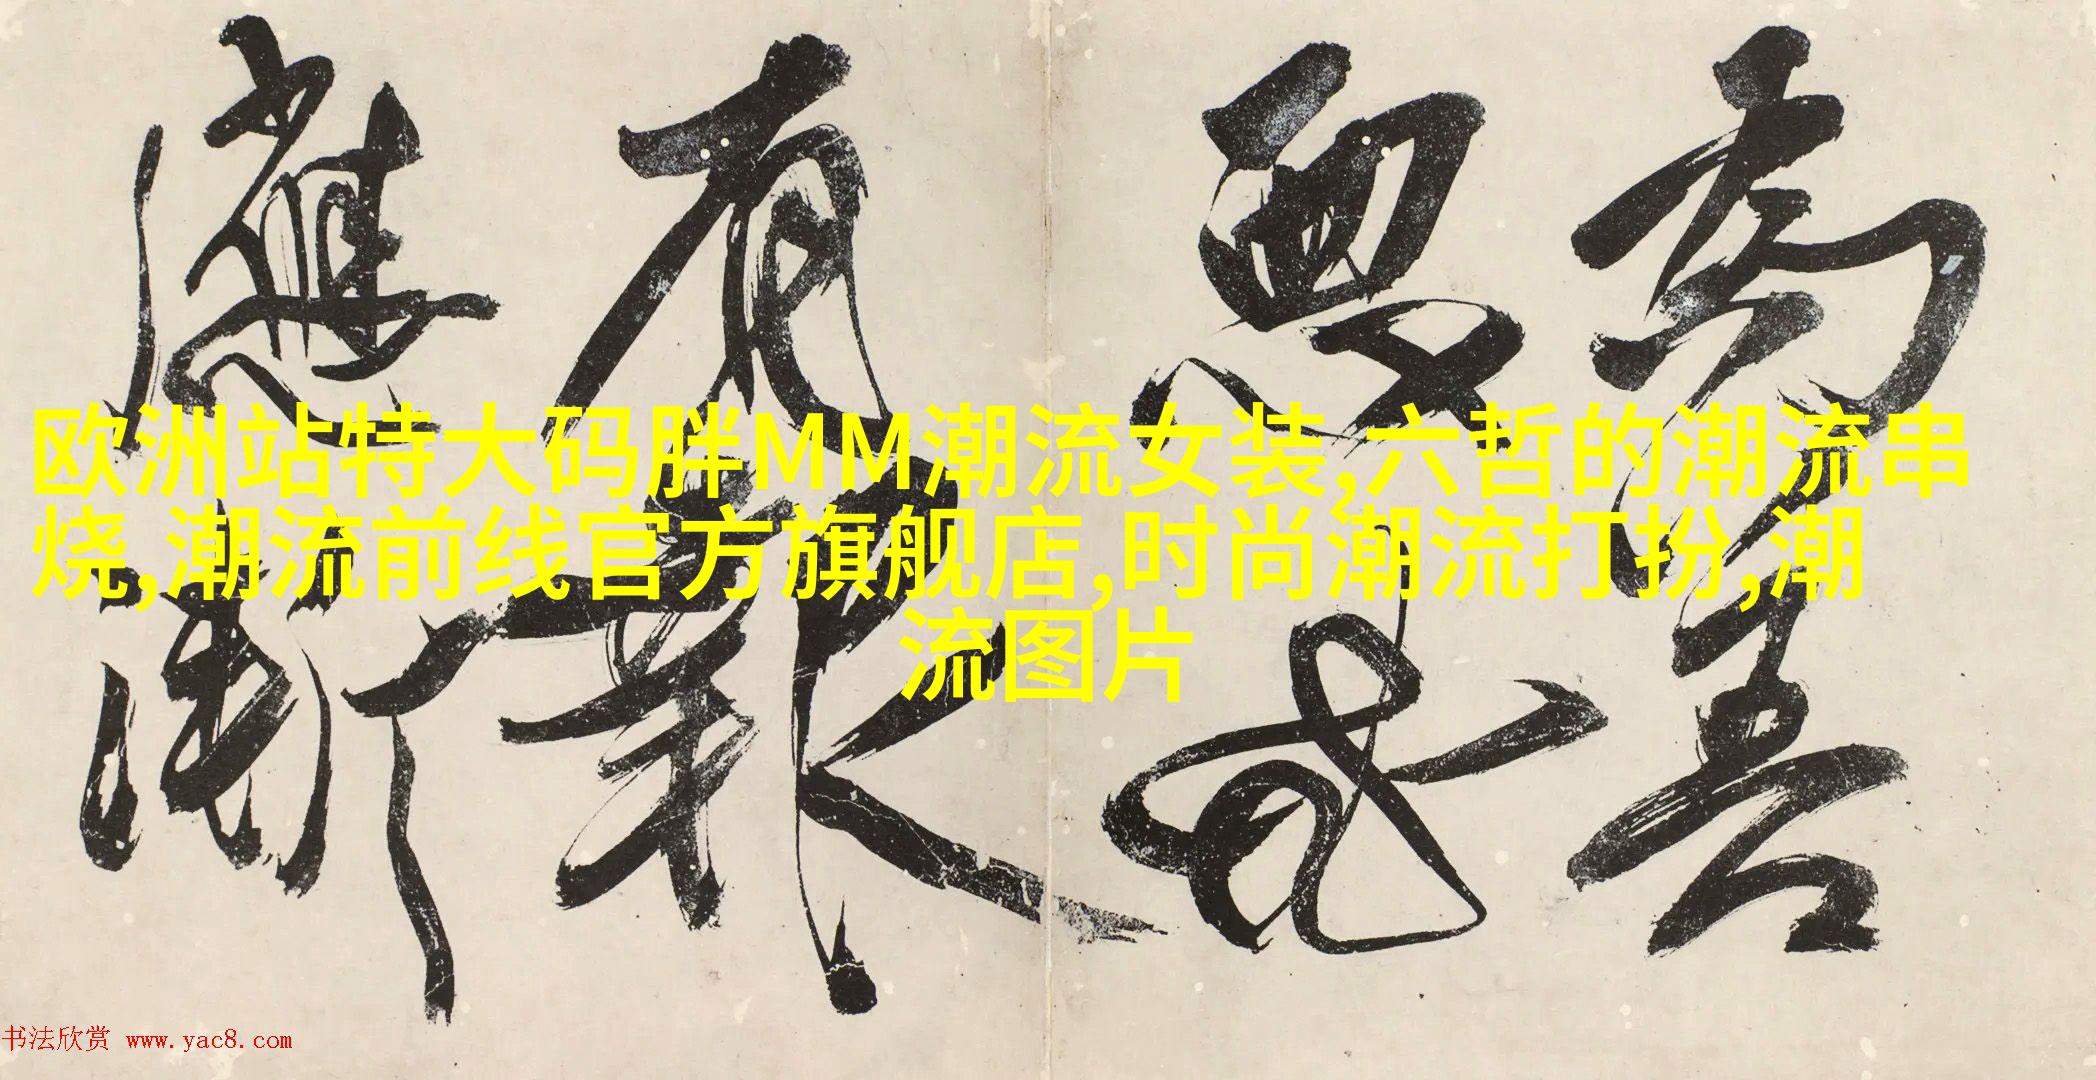 為善
有報
應
欧洲站特大码胖MM潮流女装,六哲的潮流串
烧,潮流前线官方旗舰店,时尚潮流打扮,潮
流图片
书法欣赏 www.yac8.com